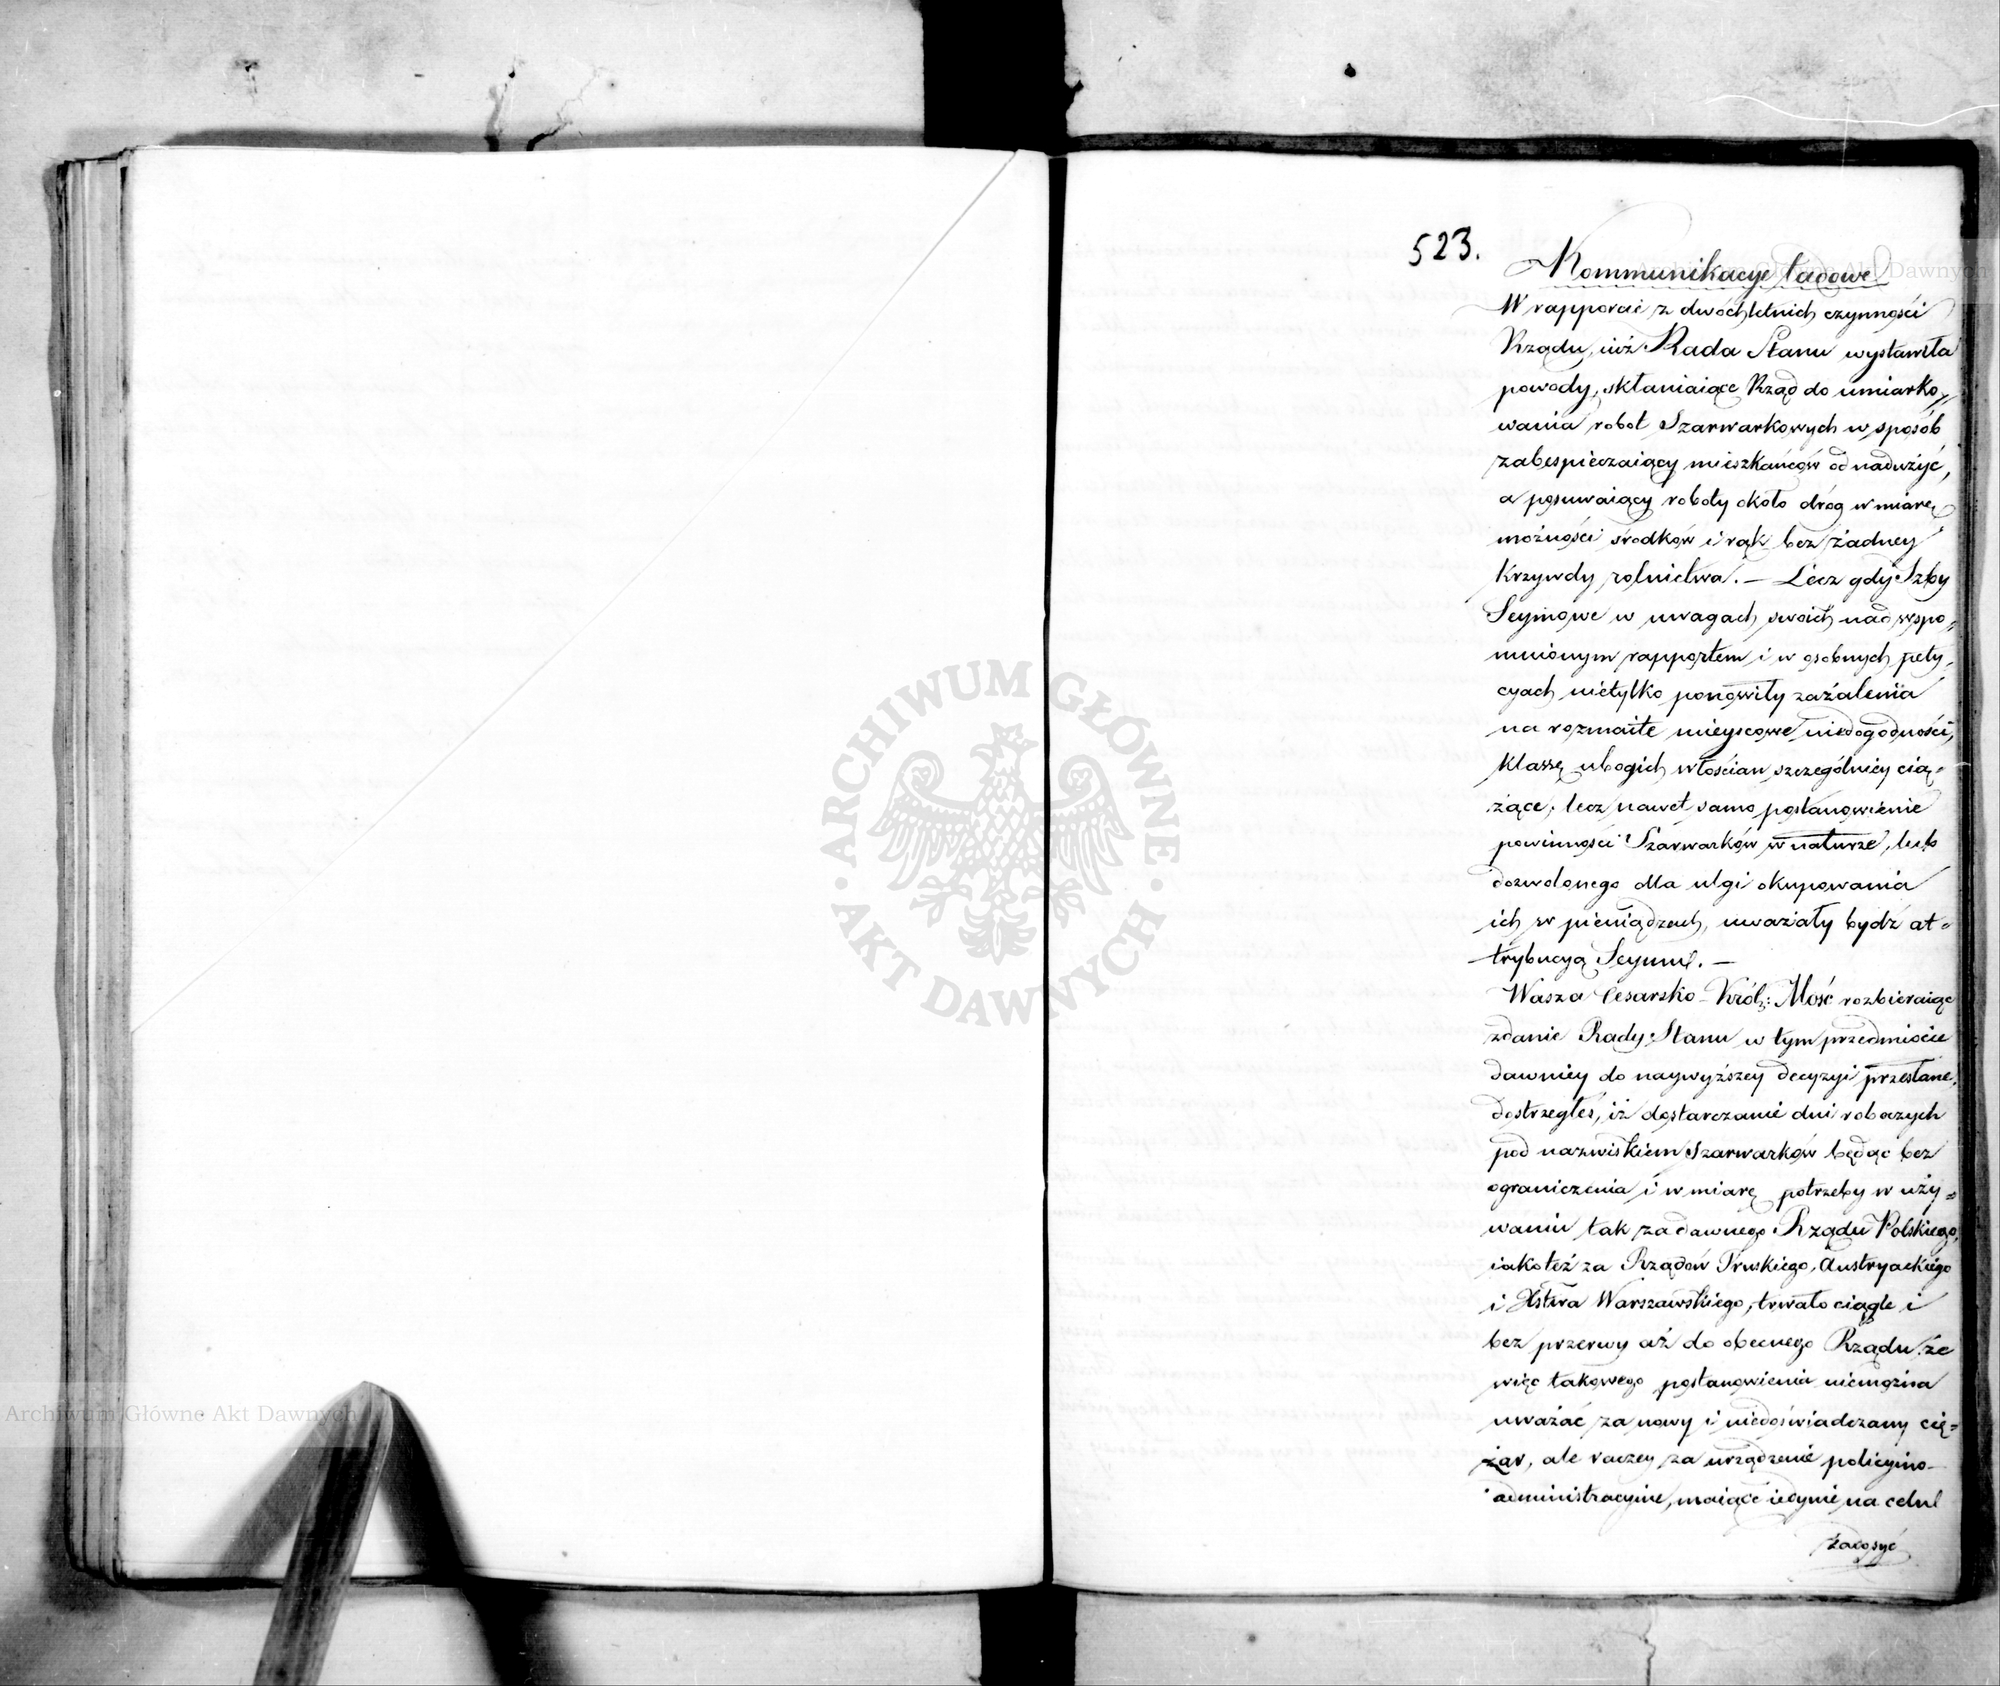 523.
Kommunikacye lądowe
W rapporcie z dwóchletnich czynności
Rządu, iuż Rada Stanu wystawiła
powody, skłaniaiące Rząd do umiarko„
wania robot Szarwarkowych w sposób
zabespieczaiący mieszkańców od nadużyć,
a posuwaiący roboty około dróg w miarę
możności środków i rąk bez żadney
krzywdy rolnictwa. — Lecz gdy Izby
Seymowe w uwagach swoich nad wspo„
mnionym rapportem i w osobnych pety„
cyach nietylko ponowiły zażalenia
na rozmaite mieyscowe niedogodności,
klassę ubogich włościan szczególniey cią=
żące, lecz nawet samo postanowienie
powinności Szarwarków w naturze, lub
dozwolonego dla ulgi okupowania
ich w pieniądzach, uważały bydź at=
trybucyą Seymu. —
Wasza Cesarsko-Król: Mość rozbieraiąc
zdanie Rady Stanu w tym przedmiocie
dawniey do naywyższey decyzyi przesłane,
dostrzegłeś, iż dostarczanie dni roboczych
pod nazwiskiem Szarwarków będąc bez
ograniczenia i w miarę potrzeby w uży=
waniu tak za dawnego Rządu Polskiego,
iakoteż za Rządów Pruskiego, Austryackiego
i Xstwa Warszawskiego, trwało ciągle i
bez przerwy aż do obecnego Rządu; że
więc takowego postanowienia niemożna
uważać za nowy i niedoświadczany cię=
żar, ale raczey za urządzenie policyino-
administracyine, maiące iedynie na celu
zadosyć
ARCHIWUM GŁÓWNE AKT DAWNYCH
Archiwum Główne Akt Dawnych
Archiwum Główne Akt Dawnych